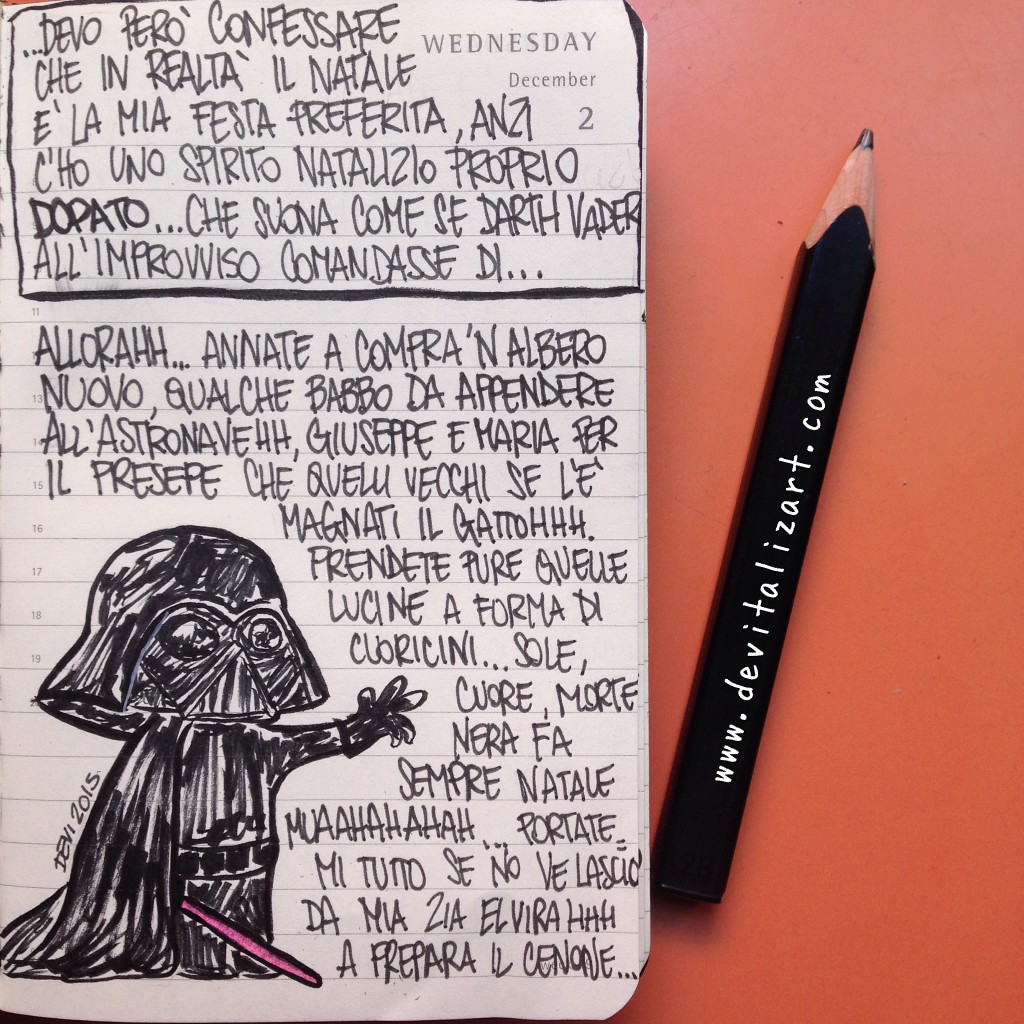 ...DEVO PERÒ CONFESSARE
CHE IN REALTÀ IL NATALE
È LA MIA FESTA PREFERITA, ANZI
C'HO UNO SPIRITO NATALIZIO PROPRIO
DOPATO... CHE SUONA COME SE DARTH VADER
ALL'IMPROVVISO COMANDASSE DI...
WEDNESDAY
December
2
11
ALLORAHH... ANNATE A COMPRA'N ALBERO
NUOVO, QUALCHE BABBO DA APPENDERE
13
ALL'ASTRONAVEHH, GIUSEPPE E MARIA PER
14
IL PRESEPE CHE QUELLI VECCHI SE L'È
15
MAGNATI IL GATTOHHH.
16
PRENDETE PURE QUELLE
17
LUCINE A FORMA DI
18
CUORICINI... SOLE,
19
CUORE, MORTE
NERA FA
SEMPRE NATALE
MUAAHAHAHAH... PORTATE_
MI TUTTO SE NO VE LASCIO
DA MIA ZIA ELVIRAHHH
A PREPARA IL CENONE...
DEVI 2015.
www.devitalizart.com